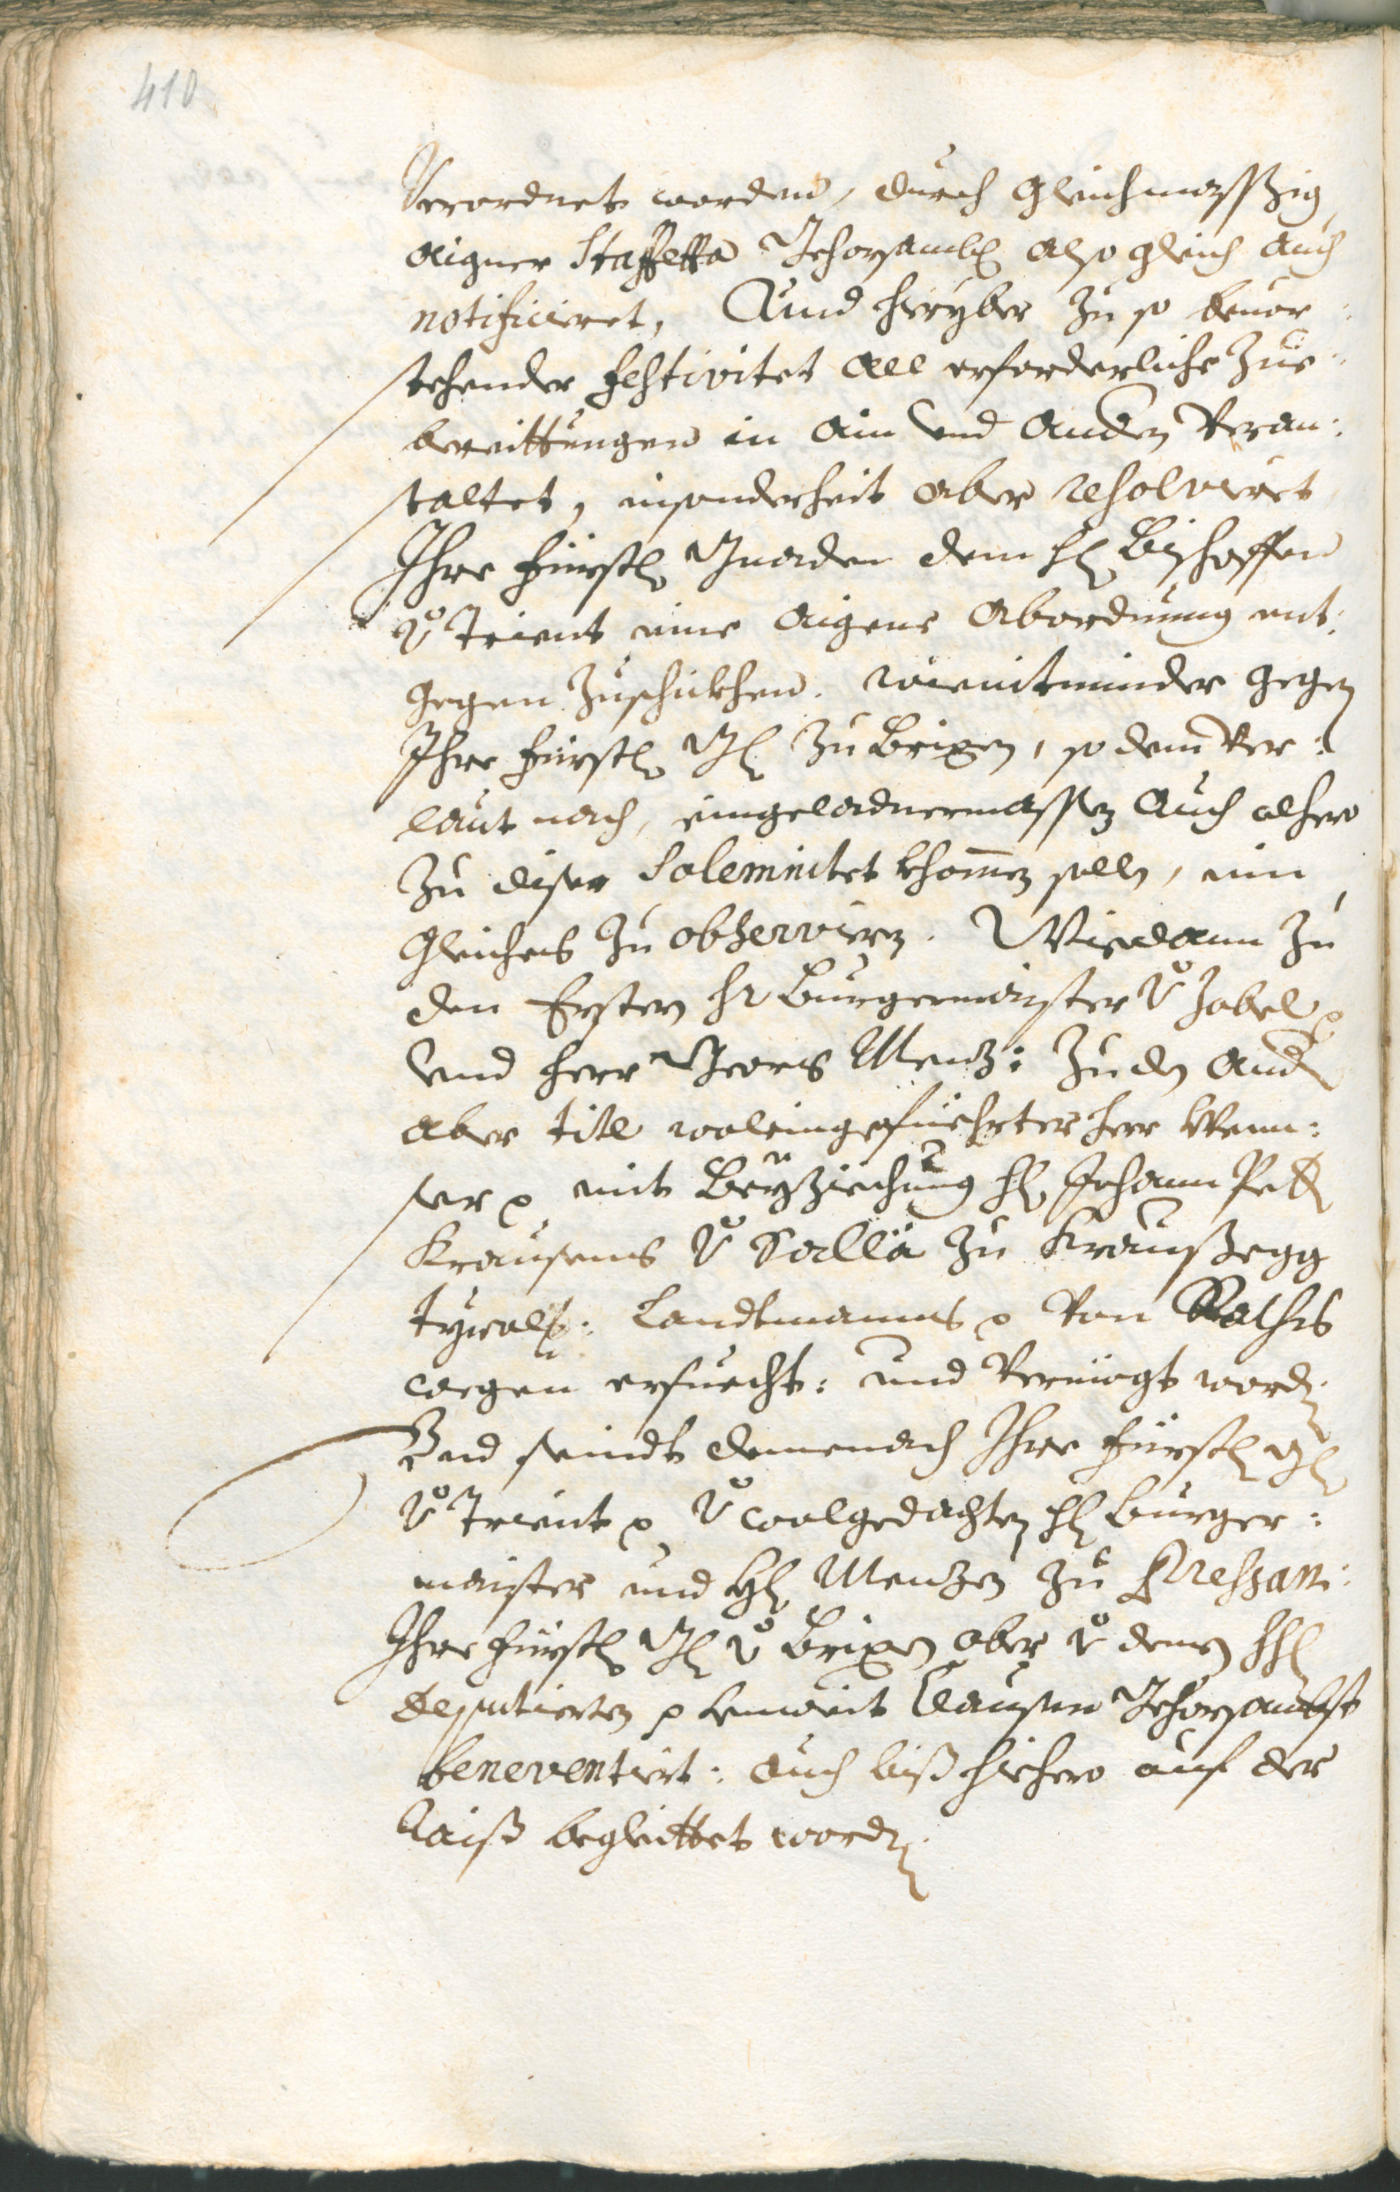 410
Verordnet worden, durch gleichmessßig
aigner Staffetta Gehorsambl. also gleich auch
notificieret, Aund hieryber zu so beuor:
stehender festivitet all erforderliche Zue:
bereittungen in ain und anden Veran:
staltet, insonderheit aber resolvieret
Ihre fürstl. Gnaden dem hl. Bischoffen
v. Trient eine aigene Abordnung ent:
gegen zuschickhen. wienitminder gegen
Ihre fürstl. Gl. zu Brixen, so dem Ver:
laut nach, eingeladnermassen auch alhero
zu diser Solemnitet khomen solle, ein
gleiches zu observieren. Wiedann zu
den Ersten hr Burgermaister v. Zobel p.
und herr Georg Menz: zu den andn
aber titl woleingefüehrter herr Wenn:
ser p. mit Beyziechung hl. Johann Pettr
Krausens v. Sallä zu Kraußegg
tyroll: Landtmanns p. von Raths
wegen ersuecht: und Vermögt worden.
Und seindt demenach Ihre fürstl. Gl.
v. Trient p. v. wolgedachten hl. Burger:
maister und Hl. Menzen zu
Ihre fürstl. Gl. v. Brixen aber v. denen hhl.
deputierten p. Clausen Gehorsambst
beneventiert: auch biß hiehero auf der
Raiß begleittet worden.